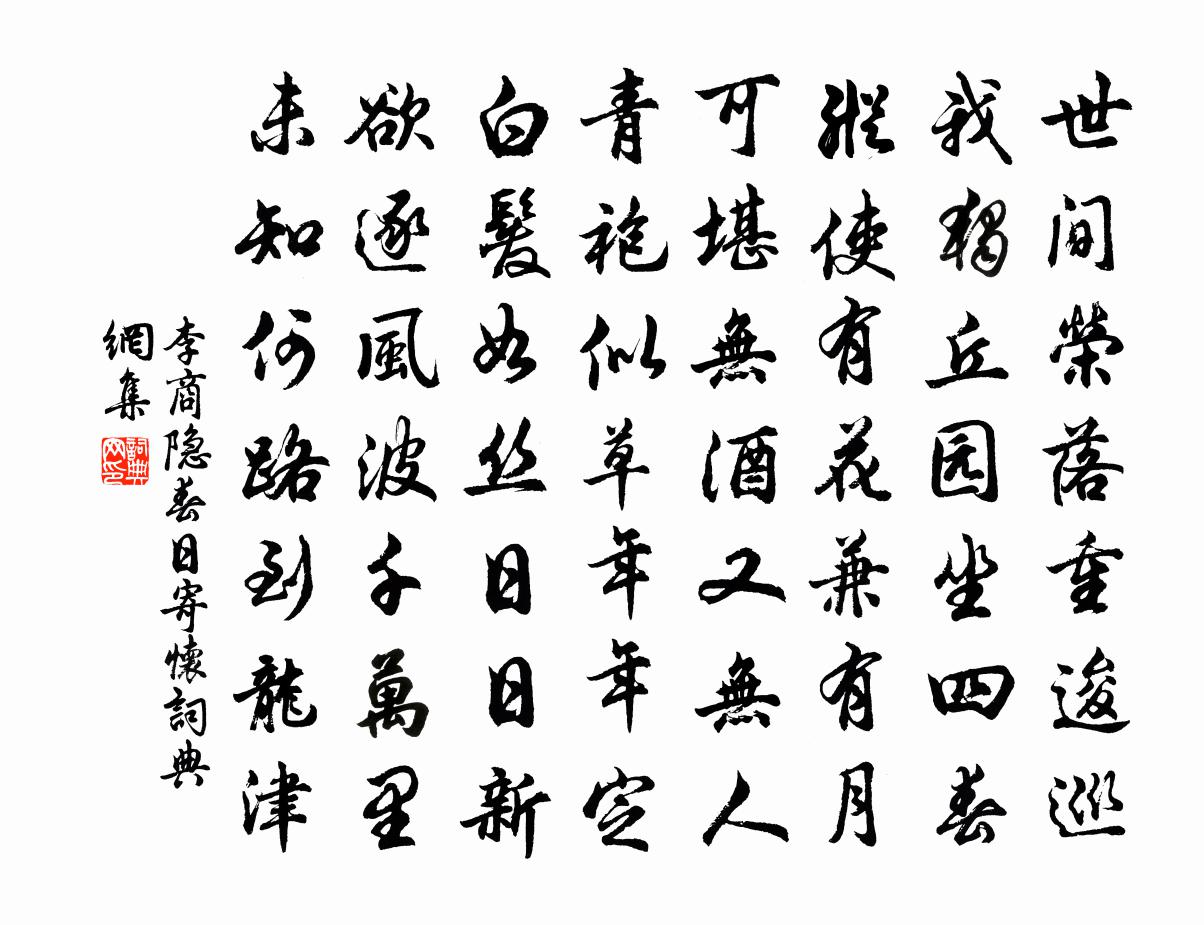 世间榮落重逡巡
我獨丘园坐四春
縱使有花兼有月
可堪無酒又無人
青袍似草年年定
白髮如丝日日新
欲逐風波千萬里
未知何路到龍津
李商隐春日寄懷詞典
網集
詞典网印